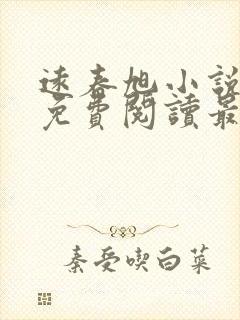 速秦旭小說
免費閱讀最
秦受喫白菜